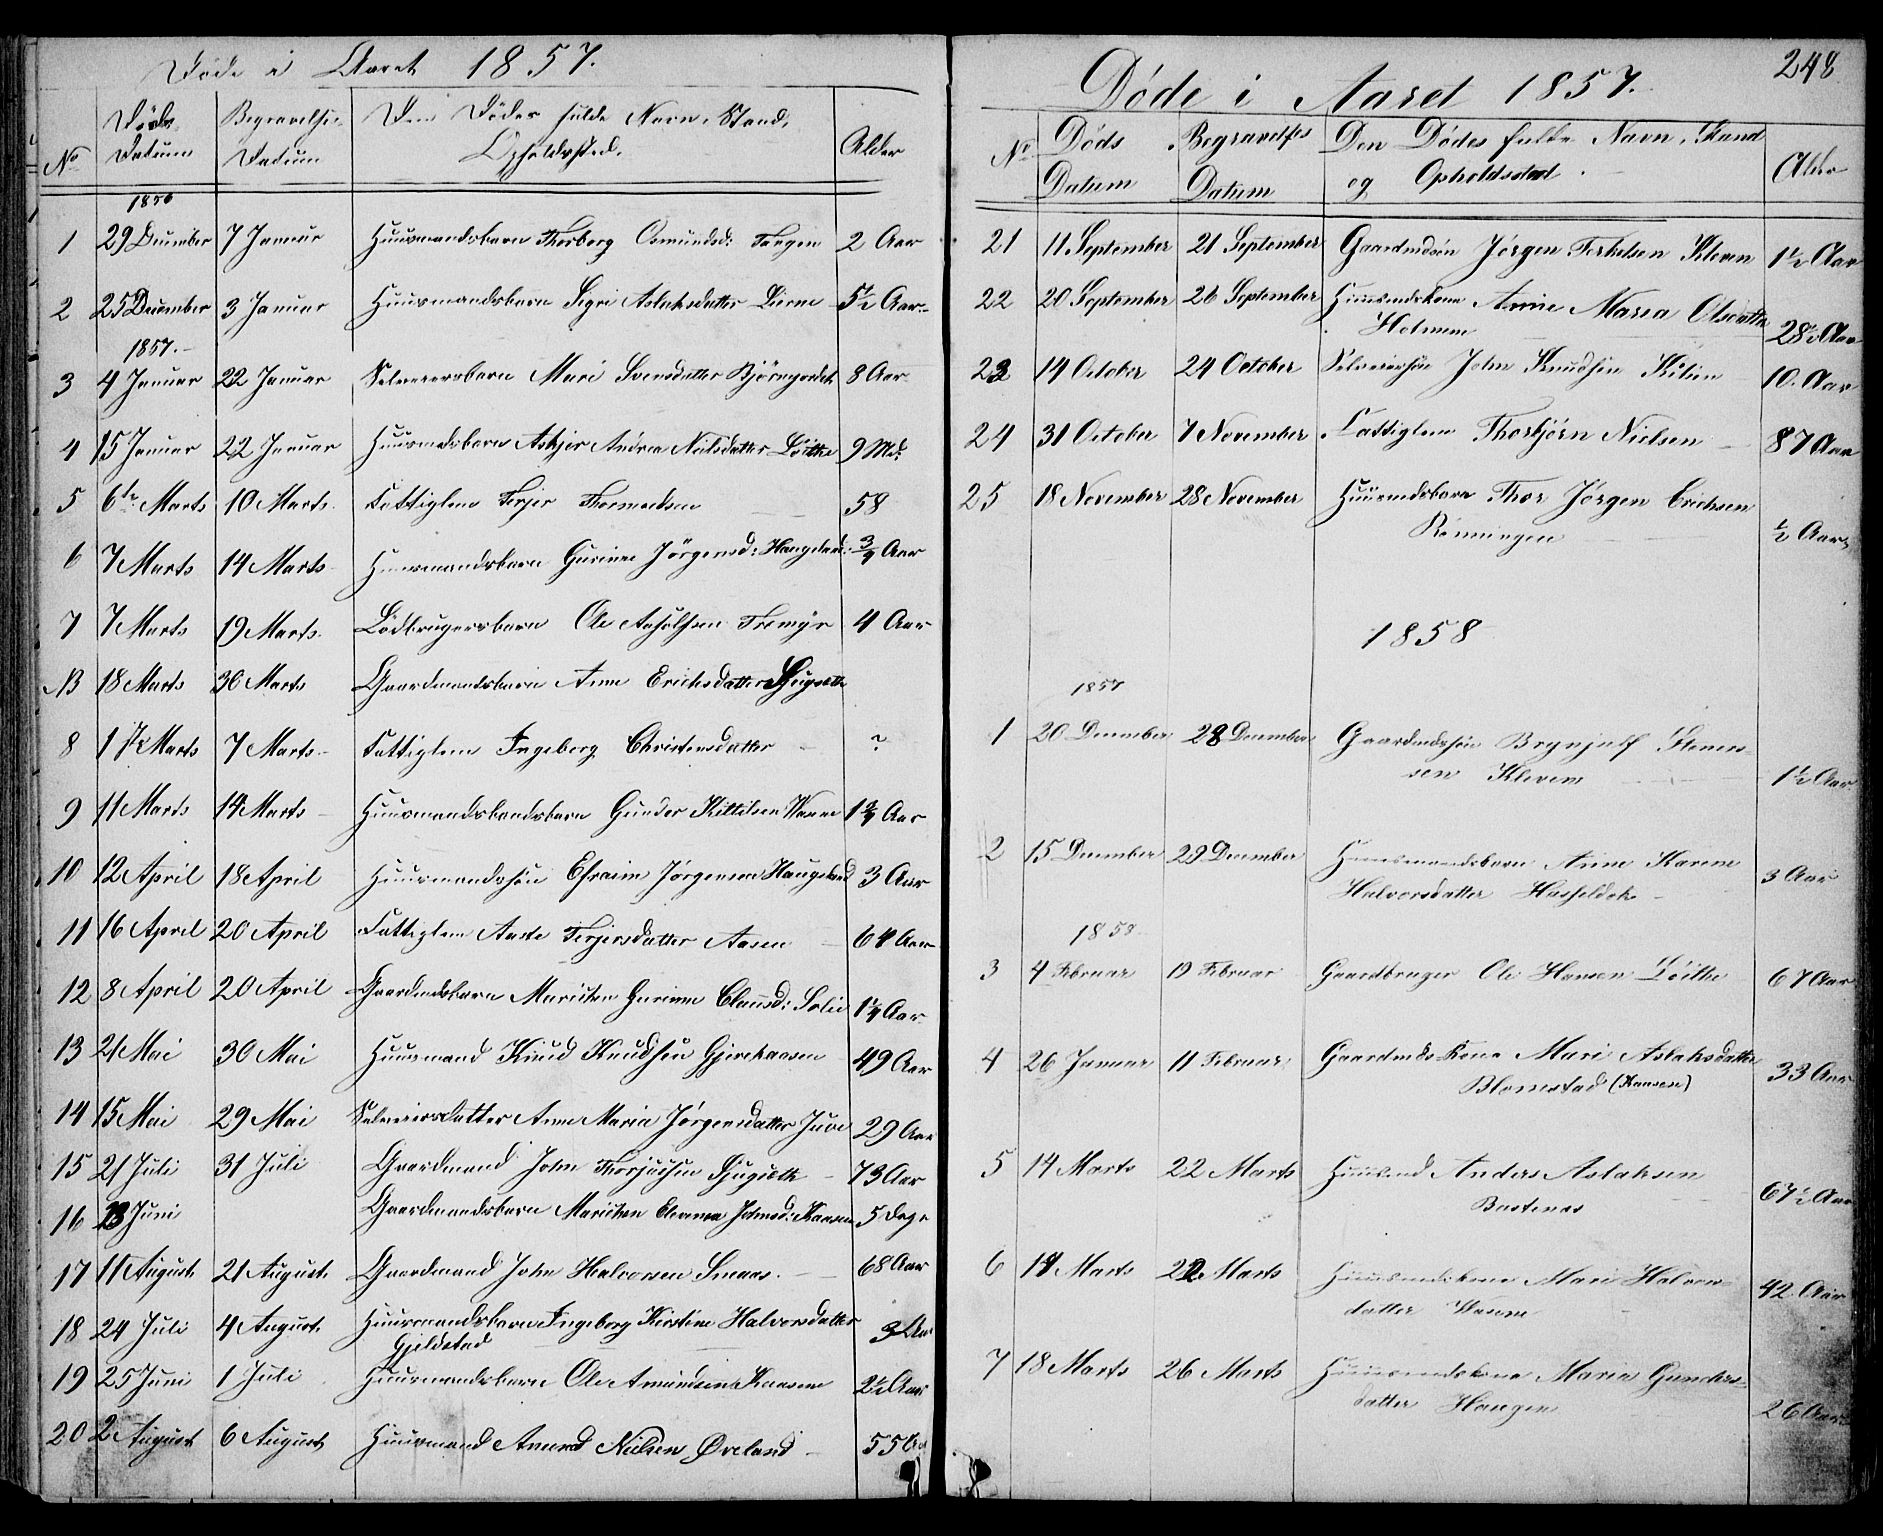 Døde i Aaret 1857.
No Døds Datum Begravelses Datum Den Dødes fulde Navn, Stand, Opholdssted. Alder
1856
1 29 December 7 Januar Huusmandsbarn Thorborg Osmundsd: Tangen 2 Aar
2 25 December 3 Januar Huusmandsbarn Segri Aslaksdatter Lierne 5½ Aar
1857.
3 4 Januar 22 Januar Selveiersbarn Mari Svensdatter 8 Aar
4 15 Januar 22 Januar Huusmdsbarn Askjer Andrea Nielsdatter Løithe 9 Md:
5 6te Marts 10 Marts Fattiglem Terjer 58
6 7 Marts 14 Marts Huusmandsbarn Gurine Jörgensd: Haugeland ¾ Aar
7 7 Marts 19 Marts Lödbrugersbarn Ole 4 Aar
NB 18 Marts 30 Marts Gaardmandsbarn Anne Erichsdatter
8 1 Marts 7 Marts Fattiglem Ingeborg Christensdatter ?
9 11 Marts 14 Marts Gunder Kittilsen 1¾ Aar
10 12 April 18 April Huusmandssön Efraim Jørgensen Haugeland 3 Aar
11 16 April 20 April Fattiglem Aaste Terjersdatter Aasen 64 Aar
12 8 April 20 April Gaardmdsbarn Marichen Gurine Clausd: Solie 1¼ Aar
13 21 Mai 30 Mai Huusmand Knud Knudsen 49 Aar
14 15 Mai 29 Mai Selveiersdatter Anne Maria Jørgensdatter Juve 29 Aar
15 21 Juli 31 Juli Gaardmand John 73 Aar
16 13 Juni Gaardmandsbarn Marichen Johnsd: Kaasen 5 Dage
17 11 August 21 August Gaardmand John Halvorsen 68 Aar
18 24 Juli 4 August Huusmandsbarn Ingeborg Kirstine Halvorsdatter 3 Aar
Gjeldstad
19 25 Juni 1 Juli Huusmandsbarn Ole Amundsen Kaasene 2½ Aar
20 2 August 6 August Huusmand Amund Nielsen Øveland 55 Aar
248
Døde i Aaret 1857.
No Døds Datum Begravelses Datum Den Dødes fulde Navn, Stand og Opholdssted. Alder
21 11 September 21 September Gaardmdsön Jörgen Terkelsen Kleven 1½ Aar
22 20 September 26 September Huusmdskone Anne Maria Olsdatter
Holmen 28½ Aar
23 14 October 24 October Selveiersön John Knudsen Kilien 10 Aar
24 31 October 7 November Fattiglem Thorbjörn Nielsen 87 Aar
25 18 November 28 November Huusmdsbarn Thor Jörgen Erichsen
Rönningen ½ Aar
1858
1857
1 20 December 28 December Gaardmdssön Brynjulf Stener-
sen Klevene 1½ Aar
2 15 December 29 December Huusmandsbarn Anne Karine
Halvorsdatter Hasseldok 3 Aar
1858
3 4 Februar 19 Februar Gaardbruger Ole Hansen Löithe 67 Aar
4 26 Januar 11 Februar Gaardmds Kone Mari Aslaksdatter
Blomstad (Kaasen) 33 Aar
5 14 Marts 22 Marts Huusmd Anders Aslaksen
Bustenes 67½ Aar
6 14 Marts 22 Marts Huusmdskone Mari Halvors-
datter 42 Aar
7 18 Marts 26 Marts Huusmdskone Maria Gunders-
datter Haugen 26 Aar